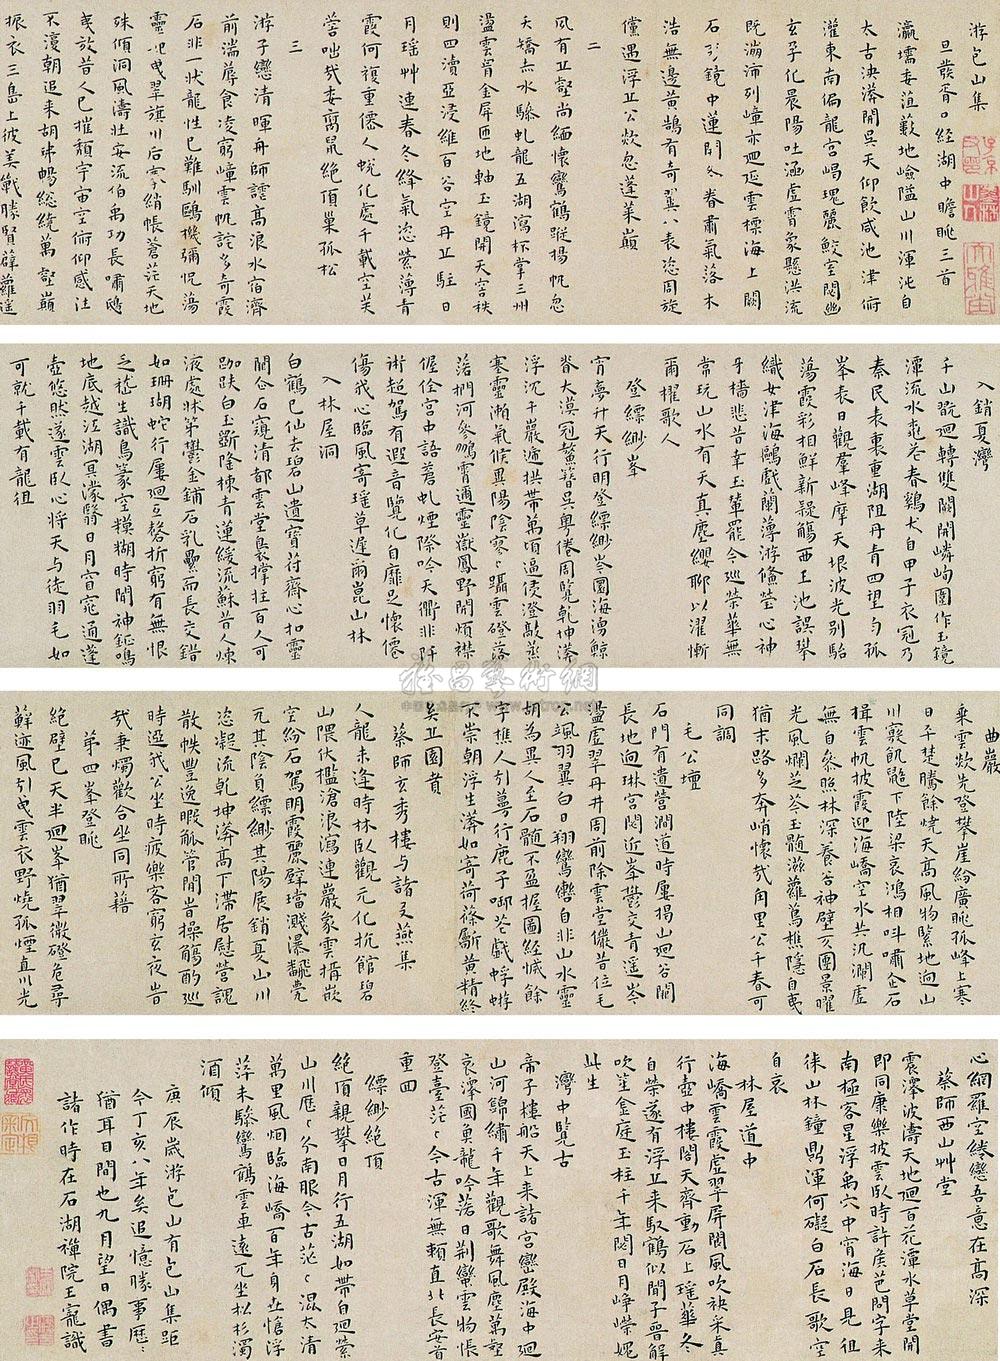 游包山集
旦發胥口經湖中瞻眺三首
瀛壖委菹藪地嶮隘山川渾沌自
太古泱漭開吳天仰飲咸池津俯
灌東南偏龍宮嵑瑰麗鮫室閟幽
玄孕化晨陽吐涵虛霄象懸洪流
既淵沛列嶂亦迴延雲標海上闕
石影鏡中蓮閉冬春肅氣落木
浩無邊黃鵠有奇翼八表恣周旋
儻遇浮丘公欻忽蓬萊巔
二
夙有丘壑尚緬懷鸞鶴蹤揚帆忽
天矯赤水驂虬龍五湖瀉杯掌三州
盪雲胷金屏匝地軸玉鏡開天宮秩
則四瀆亞浸維百谷空丹丘駐日
月瑤艸連春冬絳氣恣紫薄青
霞何複重僊人蛻化處千載空芙
蓉咄哉委腐鼠絕頂巢孤松
三
游子戀清暉舟師譹高浪水宿濟
前湍蓐食凌窮嶂雲帆詫多奇霞
石非一狀龍性已難馴鷗機彌怳蕩
靈妃曳翠旗川后搴綃帳蒼茫天地
殊傾洞風濤壯安流伯禹功長嘯鴟
夷放昔人已摧頹宇宙空俯仰感注
不濅朝追來胡琫暢總統萬壑巔
振衣三島上彼美戰勝賢薜蘿遥
入銷夏灣
千山競迴轉雙闕開嶙峋團作玉鏡
潭流水奄花春鷄犬自甲子衣冠乃
秦民表裏重湖阻丹青四望勻孤
峯表日觀羣峰摩天垠波光別駘
蕩霞彩相鮮新疑觴西王池誤攀
織女津海鷗戲蘭薄游鯈瑩心神
牙檣悲昔幸玉輦罷今巡榮華無
常玩山水有天真塵纓聊以濯慚
爾櫂歌人
登縹緲峯
宵夢升天行明登縹緲岑圜海湧鯨
脊大漠冠鼇簪吳粵倦周覽乾坤漭
浮沉千巖遞拱帶萬頃逼侵澄敲蒸
寒靈潮氣候異陽陰寥寥躡雲磴落
落捫河參鵬霄通靈嶽鳳野開煩襟
偓佺宮中語蒼虬煙際吟天衢非阡
術超駕有遐音覽化自靡足懷僊
傷我心臨風寄瑤草遲爾崑山林
入林屋洞
白鶴已仙去碧山遺寶符齋心扣靈
關僉石窺清都雲堂裊撐拄百人可
跏趺白玉斲隆棟青蓮緩流蘇昔人煉
液處牀笫鬱金鋪石乳纍而長交錯
如珊瑚蛇行屢廻互磬折窮有無恨
乏嵇生識鳥篆空糢糊時聞神鉦鳴
地底越江湖冥濛翳日月窅窕通蓬
壺悠然遂雲臥心將天与徒羽毛如
可就千載有龍徂
曲巖
乘雲欻先登攀崖紛廣眺孤峰上寒
日平楚騰餘燒天高風物緊地迥山
川竅飢鼯下陸梁哀鴻相叫嘯企石
揖雲帆披霞迎海嶠空水共汎瀾虛
無自參照林深養谷神壁立團景曜
光風爛芝岑玉髓滋蘿蔦樵隱自曳
猶末路多奔峭懷哉甪里公千春可
同調
毛公壇
石門有遺營澗道時屢揭山迴谷閟
長地迥琳宮閟近峯鬱交青遥岑
監虛翠丹井周前除雲堂儼昔位毛
公颯羽翼白日翔鸞轡自非山水靈
胡為異人至石髓不盈握圖經憾餘
字樵人引萼行鹿子啣花戲蜉蝣
不崇朝浮生漭如寄荷蓧斸黃精終
矣丘園賁
蔡師玄秀樓与諸友燕集
人龍未逢時林臥觀元化抗館碧
山隈伏檻滄浪瀉連巖象雲搢嵌
空紛石駕明霞麗壁璫濺瀑飜甍
瓦其陰負縹緲其陽展銷夏山川
恣凝流乾坤漭高下滯居慰營諰
散帙豐逸暇觚管閒旹操觴酌廵
時邀我公坐時疲樂客窮玄夜旹
哉秉燭歡合坐同所藉
第四峯登眺
絕壁已天半迴峯猶翠微磴危尋
蘚迹風引曳雲衣野燒孤煙直川光
心網羅空綣戀吾意在高深
蔡師西山艸堂
震澤波濤天地迴百花潭水草堂開
即同康樂披雲臥時許侯芭問字来
南極客星浮禹穴中宵海日見徂
徠山林鐘鼎渾何礙白石長歌空
自哀
林屋道中
海嶠雲霞虛翠屏閬風吹袂采真
行壺中樓閣天齊動石上瑤華冬
自榮遂有浮丘来馭鶴似聞子晉解
吹笙金庭玉柱千年閟日月崢嶸媿
此生
灣中覽古
帝子樓船天上来諸宮巒殿海中迴
山河錦繡千年觀歌舞風塵萬壑
哀澤國魚龍吟落日荆蠻雲物悵
登臺茫茫今古渾無賴直北長安首
重回
縹緲絕頂
絕頂親攀日月行五湖如帶自迴縈
山川歷歷冬南服今古茫茫混太清
萬里風烟臨海嶠百年身世愴浮
萍未驂鸞鶴雲車遠兀坐松杉濁
酒傾
庚辰歲游包山有包山集距
今丁亥八年矣追憶勝事歷歷
猶耳目間也九月望日偶書
諸作時在石湖禪院王寵識